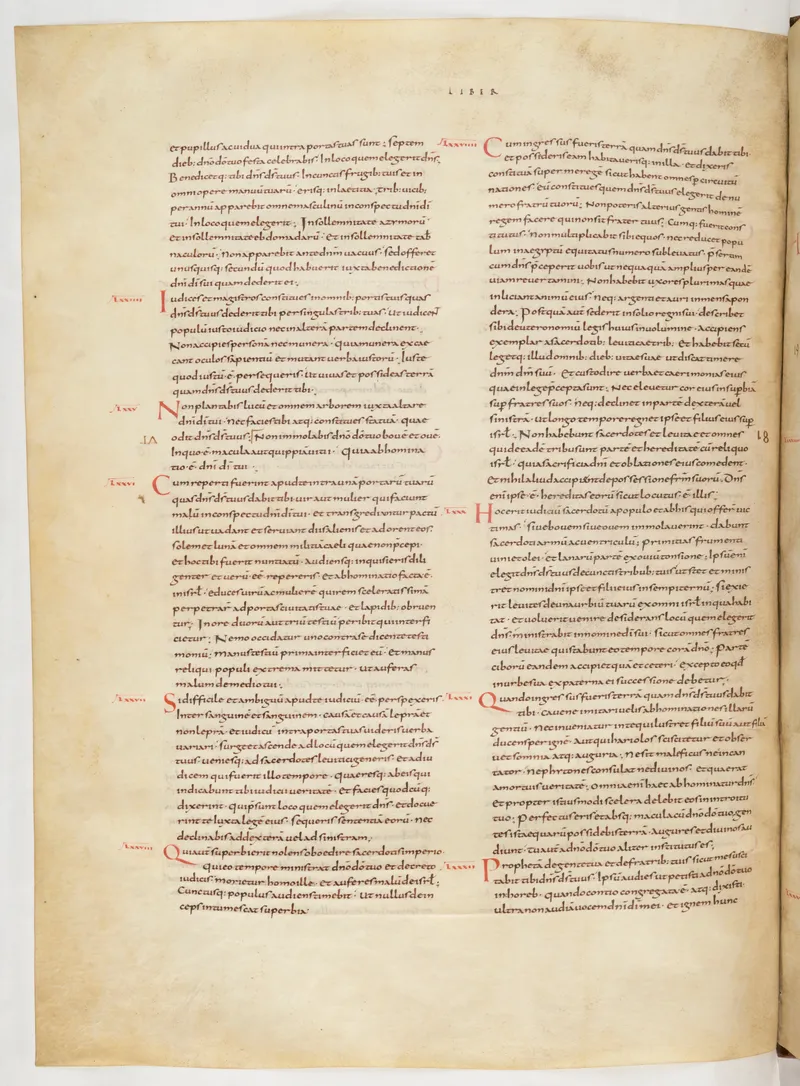 LIBER
et pupillus ac uidua qui intra portas tuas sunt; Septem
dieb; dño dō tuo festa celebrabis. In loco quem elegerit dñs.
Benedicetq; tibi dñs dš tuus. In cunctis frugib; tuis et in
omni opere manuū tuarū. erisq; in laetitia; Trib; uicib;
per annū apparebit omne masculinū in conspectu dñi dī
tui. In loco quem elegerit; In sollemnitate azymorū.
et in sollemnitate ebdomadarū. Et in sollemnitate tab
naculorū. Non apparebit ante dñm uacuus. sed offeret
unusquisq; secundū quod habuerit iuxta benedictione
dñi dī sui quam dederit ei;
LXXIIII Iudices et magistros constitues in omnib; portis tuis quas
dñs dš tuus dederit tibi per singulas trib; tuas. Ut iudicent
populū iusto iudicio nec in alterā partem declinent.
Non accipies personā nec munera. quia munera excae
cant oculos sapientiū et mutant uerba iustorū. Iuste
quod iustū ē persequeris. Ut uiuas et possideas terrā
quam dñs dš tuus dederit tibi.
LXXV Non plantabis lucū et omnem arborem iuxta altare
dñi dī tui. nec facies tibi atq; constitues statuā. quae
odit dñs dš tuus. Non immolabis dño dō tuo bouē et ouē.
In quo ē macula aut quippiā uitii. Quia abhomina
tio ē dñi dī tui.
LXXVI Cum reperti fuerint apud te intra unā portarū tuarū
quas dñs dš tuus dabit tibi uir aut mulier qui faciunt
malū in conspectu dñi dī tui. et transgrediuntur pactū
illius ut uadant et seruiant diis alienis et adorent eos.
solem et lunā et omnem militiā caeli quae non p̄cepi.
Et hoc tibi fuerit nuntiatū. Audiensq; inquisieris dili
genter et uerū eē reppereris. Et abhominatio facta ē
in isrł. educes uirū ac mulierē qui rem sceleratissimā
perpetrarī ad portas ciuitatis tuae. et lapidib; obruen
tur; In ore duorū aut triū testiū peribit qui interfi
cietur; Nemo occidatur uno contra se dicente testi
moniū; manus testiū prima interficiet eū. Et manus
reliqui populi extrema mittetur. ut auferas
malum de medio tui.
LXXVII Si difficile et ambiguū apud te iudiciū eē perspexeris.
Inter sanguinē et sanguinem. causā et causā leprā et
non leprā. et iudicū intra portas tuas uideris uerba
uariari. surge et ascende ad locū quem elegerit dñs dš
tuus. ueniesq; ad sacerdotes leuitici generis. et ad iu
dicem qui fuerit illo tempore. quaeresq; ab eis qui
indicabunt tibi iudicii ueritatē. Et facies quodcūq;
dixerint. qui p̄sunt loco quem elegerit dñs. et docue
rint te iuxta legē eius. sequeris sententiā eorū. nec
declinabis ad dexterā uel ad sinistram.
LXXVIII Qui aut superbierit nolens oboedire sacerdotis imperio
qui eo tempore ministrat dño dō tuo et decreto
iudicis morietur homo ille. et auferes malū de isrł;
Cunctusq; populus audiens timebit. Ut nullus dein
ceps intumescat superbia.
LXXVIIII Cum ingressus fueris terrā quam dñs dš tuus dabit tibi.
et possederis eam habitauerisq; in illa. et dixeris
constituā super me regē sicut habent omnes p̄ circuitū
nationes. eū constitues quem dñs dš tuus elegerit de nu
mero fratrū tuorū; Non poteris alterius gentis hominē
regem facere qui non sit frater tuus; Cumq; fuerit cons
titutus. Non multiplicabit sibi equos. nec reducet popu
lum in aegyptū equitatus numero subleuatus. p̄sertim
cum dñs p̄ceperit uobis ut nequaquā amplius per eandē
uiam reuertamini. Non habebit uxores plurimas quae
inliciant animū eius. neq; argenti et auri inmensa pon
dera; Postquā aut sederit in solio regni sui. describet
sibi deuteronomiū legis huius in uolumine. accipiens
exemplar a sacerdotib; leuiticae trib; Et habebit secū
legetq; illud omnib; dieb; uitae suae ut discat timere
dñm dm suū. Et custodire uerba et caerimonias eius
quae in lege p̄cepta sunt; Nec eleuetur cor eius in supbiā
sup fratres suos. neq; declinet in partē dexterā uel
sinisterā. ut longo tempore regnet ipse et filii eius sup
18 isrł. Non habebunt sacerdotes et leuitae et omnes
qui de eadē tribu sunt partē et hereditatē cū reliquo
isrł. quia sacrificia dñi et oblationes eius comedent.
Et nihil aliud accipient de possessione frm suorū. Dñs
eni ipse ē. hereditas eorū sicut locutus ē illis;
LXXX Hoc erit iudiciū sacerdotū a populo et ab his qui offer uic
timas. siue bouem siue ouem immolauerint. dabunt
sacerdoti armū ac uentriculū; primitias frumenti
uini et olei. et lanarū partē ex ouiū tonsione; Ipsū eni
elegit dñs dš tuus de cunctis tribub; tuis ut stet et minis
tret nomini dñi ipse et filii eius in sempiternū; Si exie
rit leuites de una urbiū tuarū ex omni isrł in qua habi
tat. et uoluerit uenire desiderans locū quem elegerit
dñs. ministrabit in nomine dī sui. sicut omnes fratres
eius leuitae qui stabunt eo tempore corā dño; Partē
ciborū eandem accipiet quā et ceteri. excepto eo qđ
in urbe sua ex paterna ei successione debetur;
LXXXI Quando ingressus fueris terrā quam dñs dš tuus dabit
tibi. caue ne imitari uelis abhominationes illarū
gentiū. nec inueniatur in te qui lustret filiū suū aut filiā
ducens per ignē. Aut qui hariolos sciscitetur et obser
uet somnia atq; auguria. ne sit maleficus ne incan
tator. ne phitones consulat ne diuinos. et quaerat
a mortuis ueritatē; Omnia eni haec abhominatur dñs
et propter istiusmodi scelera delebit eos in introitu
tuo; Perfectus eris et absq; macula cū dño dō tuo gen
tes istae quarū possidebis terrā. Augures et diuinos au
diunt. Tu aut a dño dō tuo aliter institutus es;
LXXXII Prophetā de gente tua et de fratrib; tuis sicut me susci
tabit tibi dñs dš tuus. Ipsū audies ut petisti a dño dō tuo
in horeb. quando contio congregata ē. atq; dixisti.
ultra non audiā uocem dñi dī mei. et ignem hunc